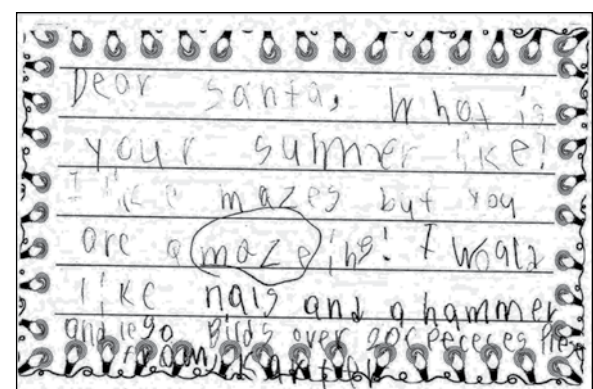 Dear Santa, What is
your summer like?
I like mazes but you
are amazeing! I would
like nais and a hammer
and lego Birds over 200 pececes